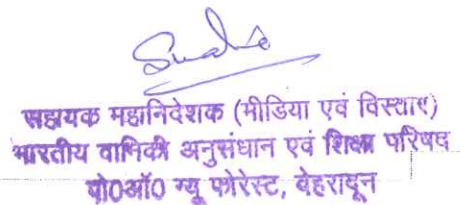 सहायक महानिदेशक (मीडिया एवं विस्तार)
भारतीय वानिकी अनुसंधान एवं शिक्षा परिषद
पो0ऑ0 न्यू फोरेस्ट, देहरादून